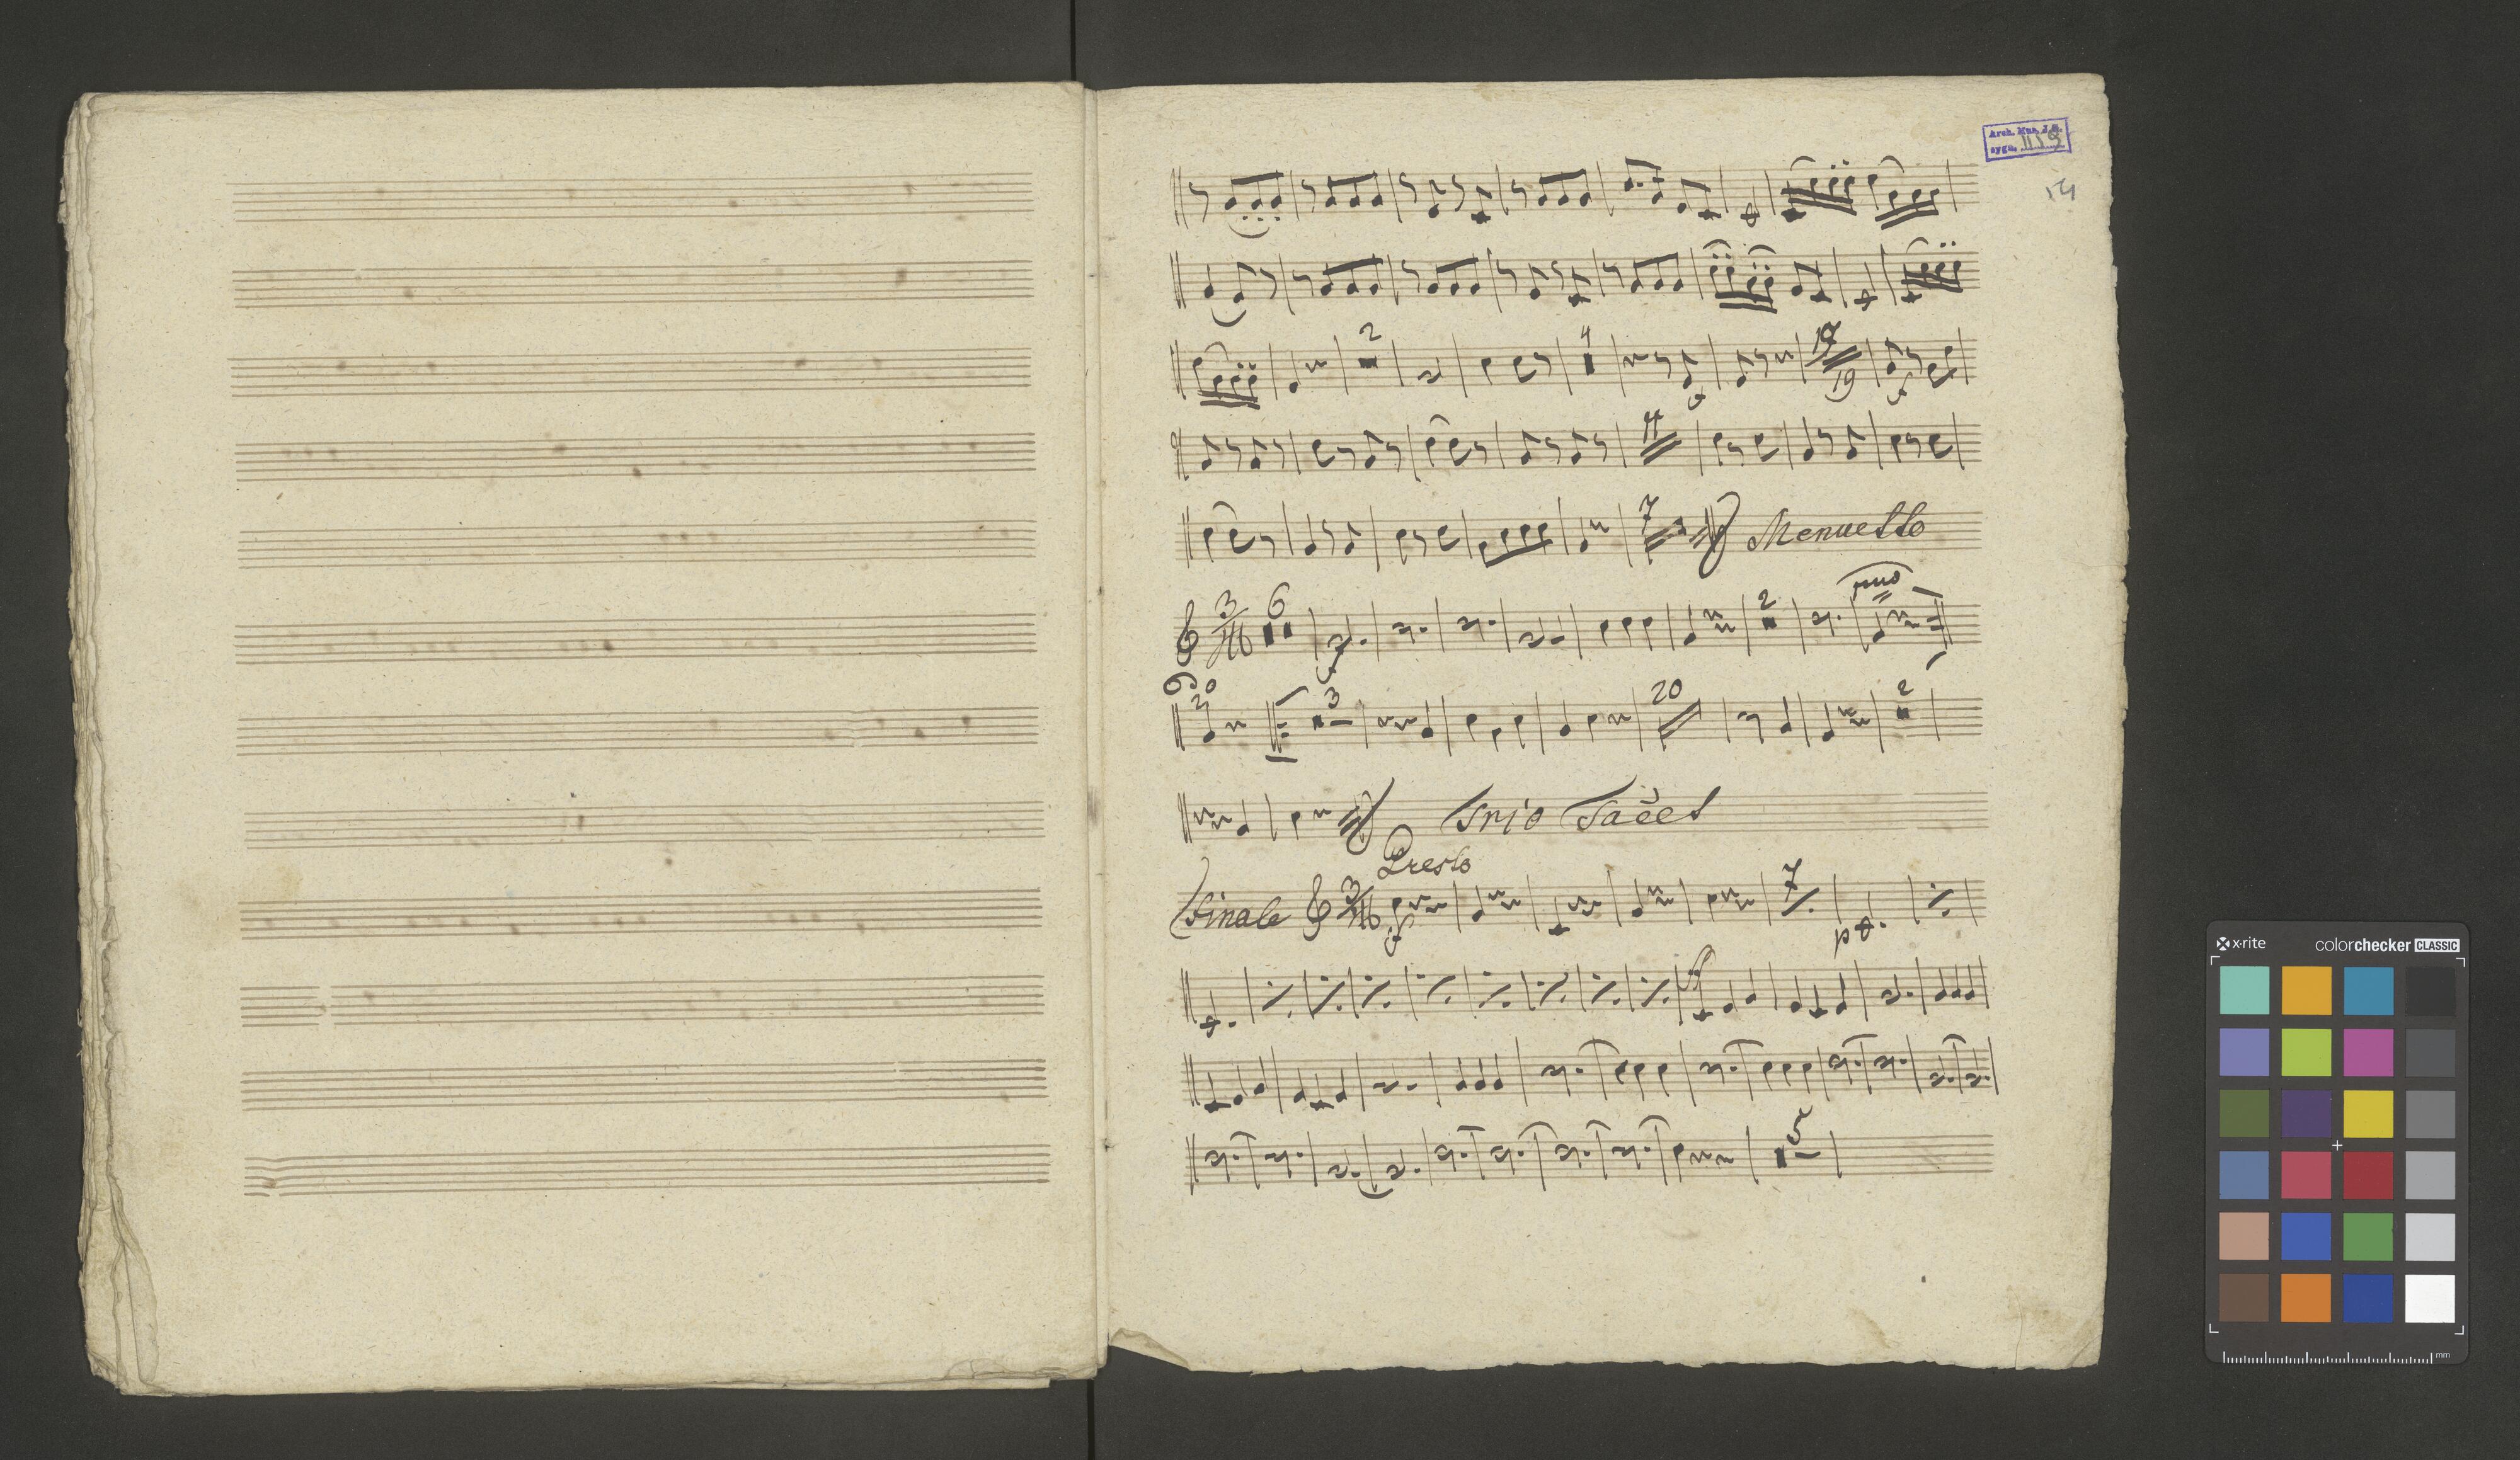 Arch. Mus. J. G.
sygn. 1139
14
2
4
19
19
f
f
4
7
Menuetto
3
6
2
f
pmo
2do
3
20
2
Trio Tacet
Presto
Finale
3
7
f
p
5
x-rite
colorchecker CLASSIC
mm